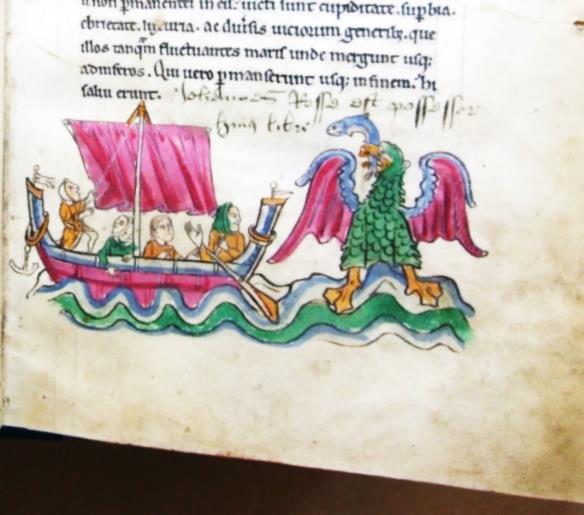 n non ꝑmanentes in eis. uicti sunt cupiditate. supbia.
ebrietate. luxuria. ac diuersis uiciorum generibꝫ. que
illos tanqͣm fluctuantes maris unde mergunt usqꝫ
ad inferos. Qui uero ꝑmanserunt usqꝫ in finem. hi
salui erunt. Iohannes Rosse est possessor
huiꝰ libri